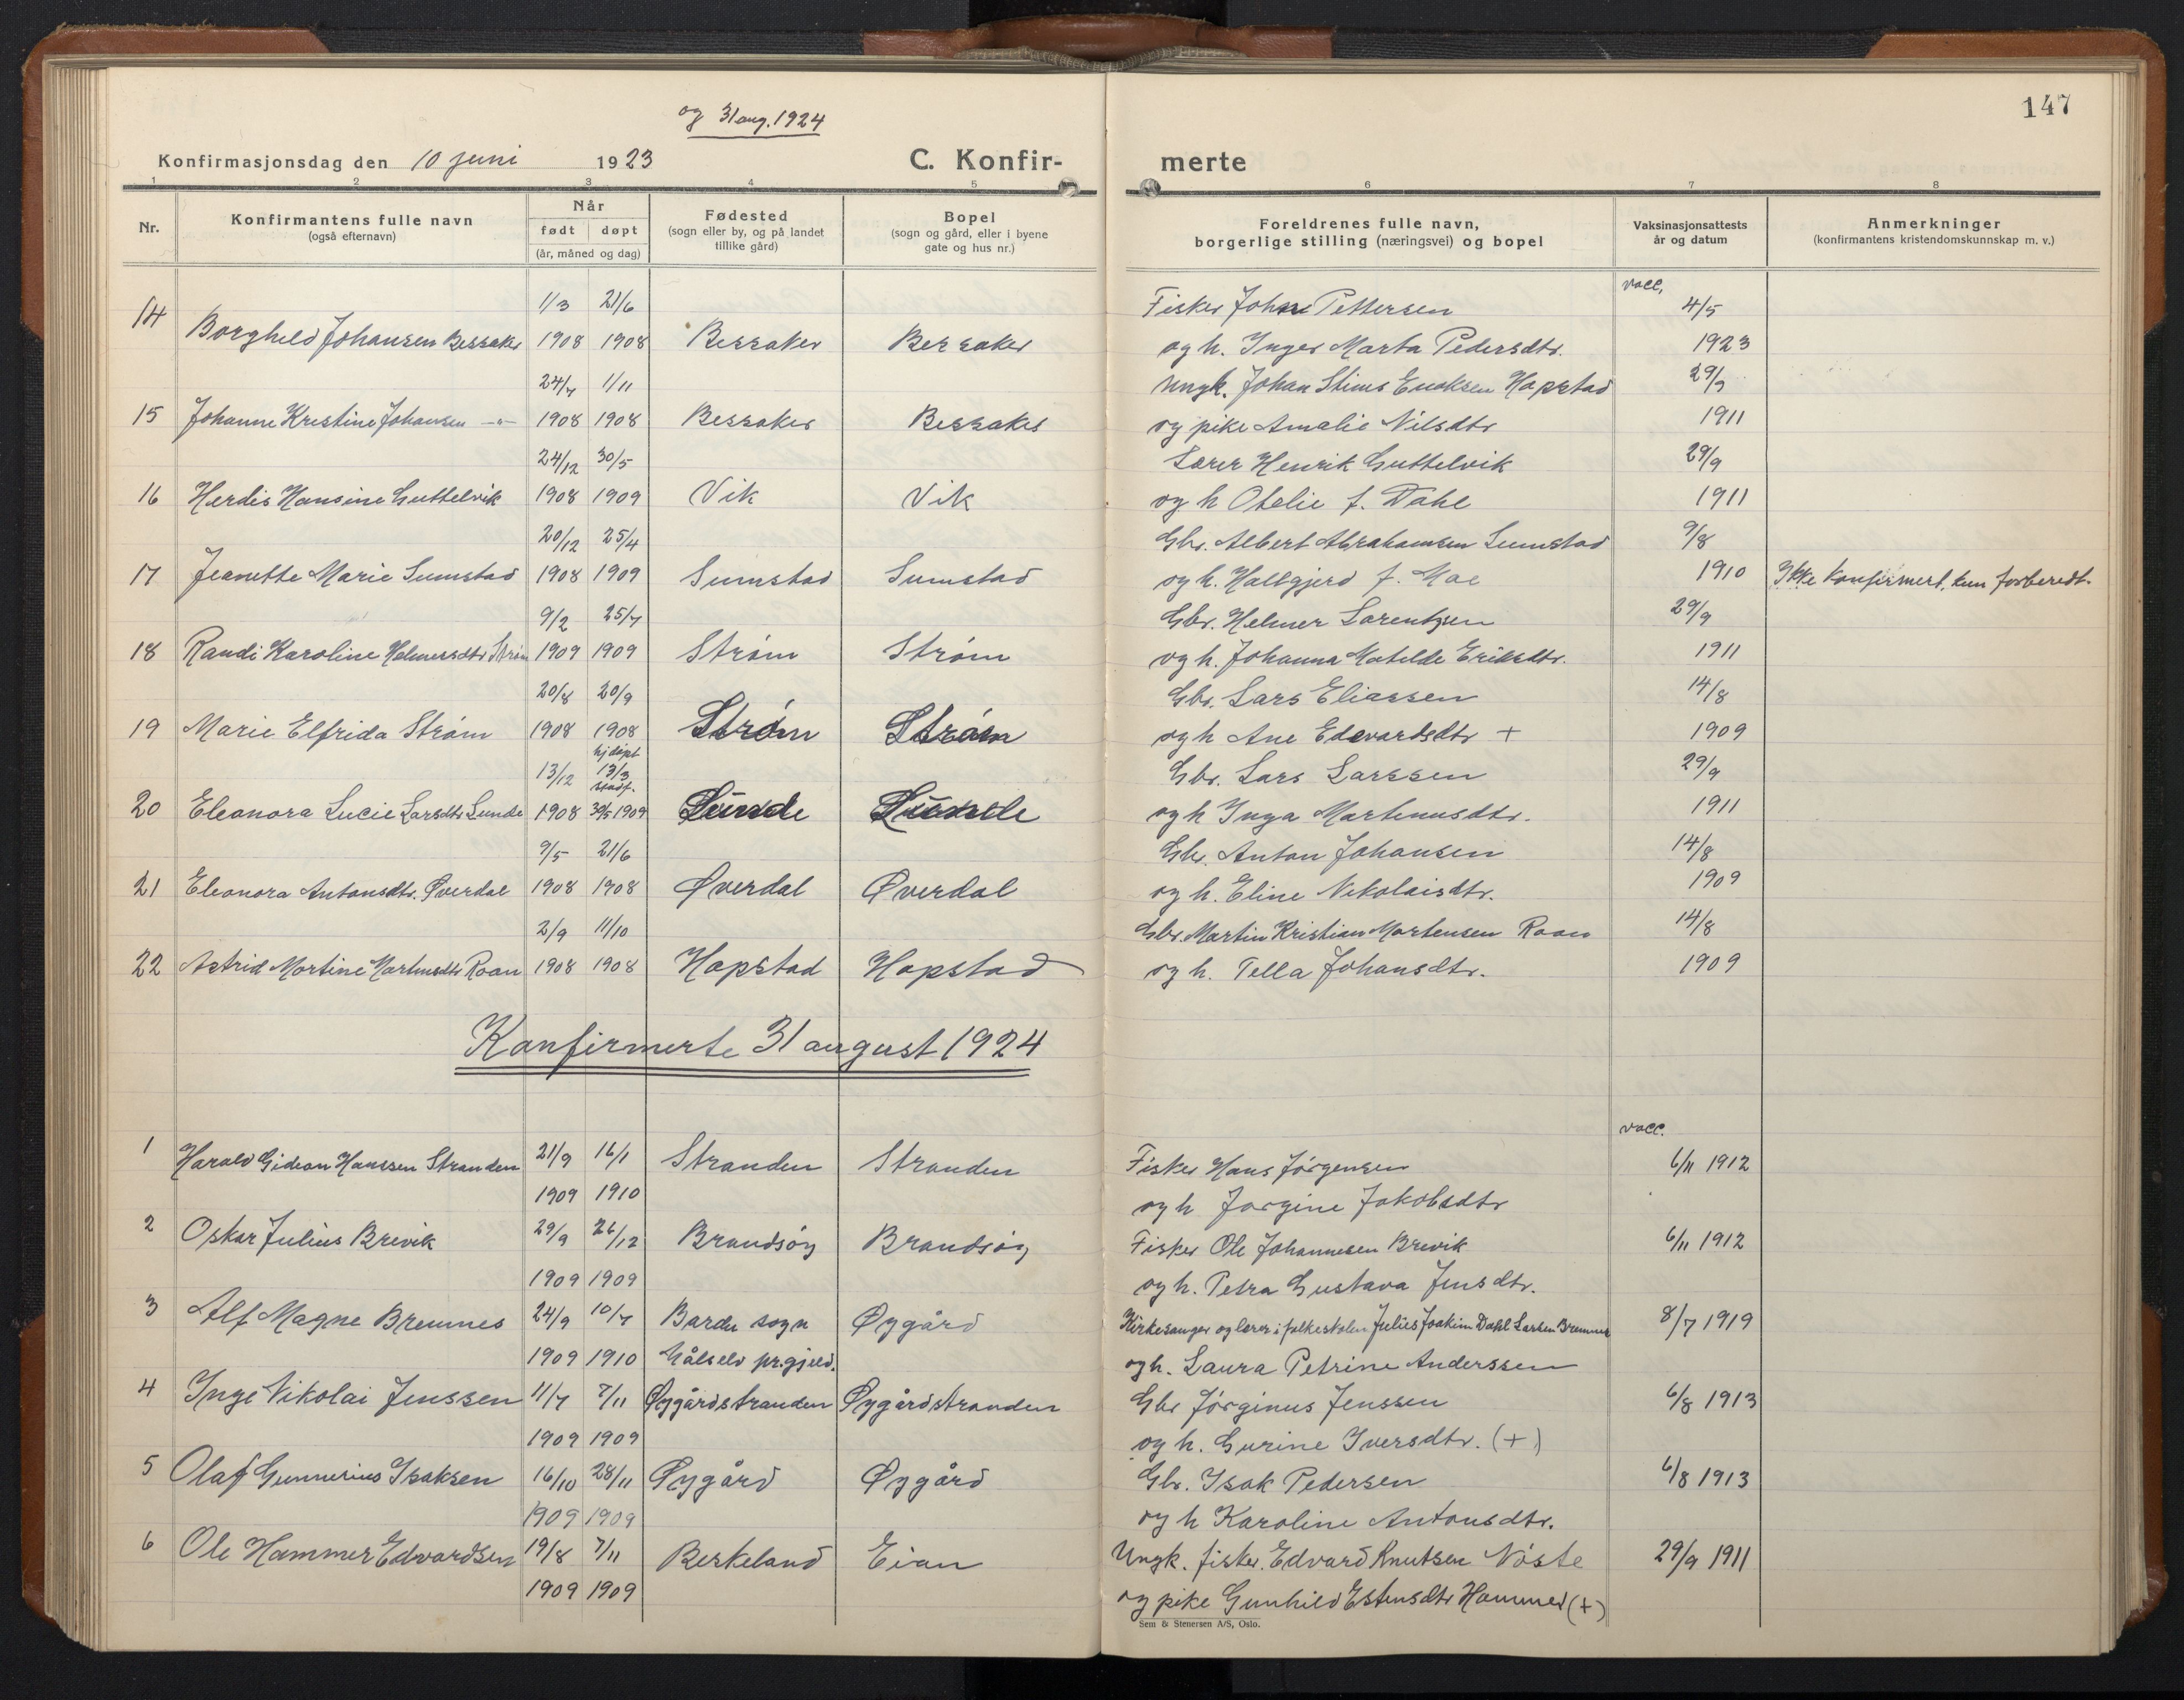 og 31 aug. 1924
147
Konfirmasjonsdag den 10 juni 1923 C. Konfir- merte
1 2 3 4 5 6 7 8
Nr. Konfirmantens fulle navn (også efternavn) Når født døpt (år, måned og dag) Fødested (sogn eller by, og på landet tillike gård) Bopel (sogn og gård, eller i byene gate og hus nr.) Foreldrenes fulle navn, borgerlige stilling (næringsvei) og bopel Vaksinasjonsattests år og datum Anmerkninger (konfirmantens kristendomskunnskap m. v.)
vacc.
1/3 21/6 Fisker Johan Pettersen 4/5
14 Borghild Johansen Bessaker 1908 1908 Bessaker Bessaker og h. Inger Marta Pedersdtr. 1923
24/7 1/11 Ungk. Johan Enoksen Hopstad 29/9
15 Johanne Kristine Johansen -"- 1908 1908 Bessaker Bessaker og pike Amalie Nilsdtr 1911
24/12 30/5 Lærer Henrik Guttelvik 29/9
16 Herdis Hansine Guttelvik 1908 1909 Vik Vik og h Otelie f. Dahl 1911
20/12 25/4 Gbr. Albert Abrahamsen Sumstad 9/8
17 Jeanette Marie Sumstad 1908 1909 Sumstad Sumstad og h. Hallgjerd f. Moe 1910 Ikke konfirmert, kun forberedt.
9/2 25/7 Gbr. Helmer Lorentzen 29/9
18 Randi Karoline Helmersdtr Strøm 1909 1909 Strøm Strøm og h. Johanna Matilde Eriksdtr. 1911
20/8 20/9 Gbr. Lars Eliassen 14/8
19 Marie Elfrida Strøm 1908 1908 Strøm Strøm og h Ane Edevardsdtr + 1909
hj.døpt
13/12 13/3 Gbr. Lars Larssen 29/9
stadf.
20 Eleonora Lucie Larsdtr Lunde 1908 30/5 1909 Lunde Lunde og h Inga Martinusdtr. 1911
9/5 21/6 Gbr. Anton Johansen 14/8
21 Eleonora Antonsdtr. Øverdal 1908 1908 Øverdal Øverdal og h. Eline Nikolaisdtr. 1909
2/9 11/10 Gbr. Martin Kristian Mortensen Roan 14/8
22 Astrid Martine Martinsdtr Roan 1908 1908 Hopstad Hopstad og h. Tella Johansdtr. 1909
Konfirmerte 31 august 1924
vacc.
1 Harald Gideon Hanssen Stranden 21/9 16/1 Stranden Stranden Fisker Hans Jørgensen 6/11 1912
1909 1910 og h Jorgine Jakobsdtr
2 Oskar Julius Brevik 29/9 26/12 Brandsøy Brandsøy Fisker Ole Johannesen Brevik 6/11 1912
1909 1909 og h. Petra Gustava Jensdtr.
3 Alf Magne Bremnes 24/9 10/7 Bardu sogn Øygård Kirkesanger og lærer i folkeskolen Julius Joakim Dahl Larsen Bremnes 8/7 1919
1909 1910 Målselv pr.gjeld. og h. Laura Petrine Anderssen
4 Inge Nikolai Jenssen 11/7 7/11 Øygårdstranden Øygårdstranden Gbr Jørginus Jenssen 6/8 1913
1909 1909 og h. Gurine Iversdtr. (+)
5 Olaf Gunnerius Isaksen 16/10 28/11 Øygård Øygård Gbr. Isak Pedersen 6/8 1913
1909 1909 og h Karoline Antonsdtr.
6 Ole Hammer Edvardsen 19/8 7/11 Berkeland Eian Ungk. fisker. Edvard Knutsen Nøste 29/9 1911
1909 1909 og pike Gunhild Estensdtr Hammer (+)
Sem & Stenersen A/S, Oslo.